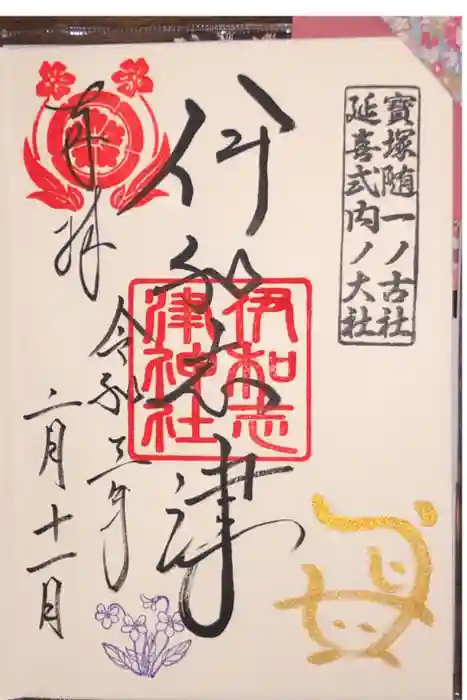 寳塚随一ノ古社
延喜式内ノ大社
伊和志津
伊和志
津神社
奉拝
令和三年
二月十一日